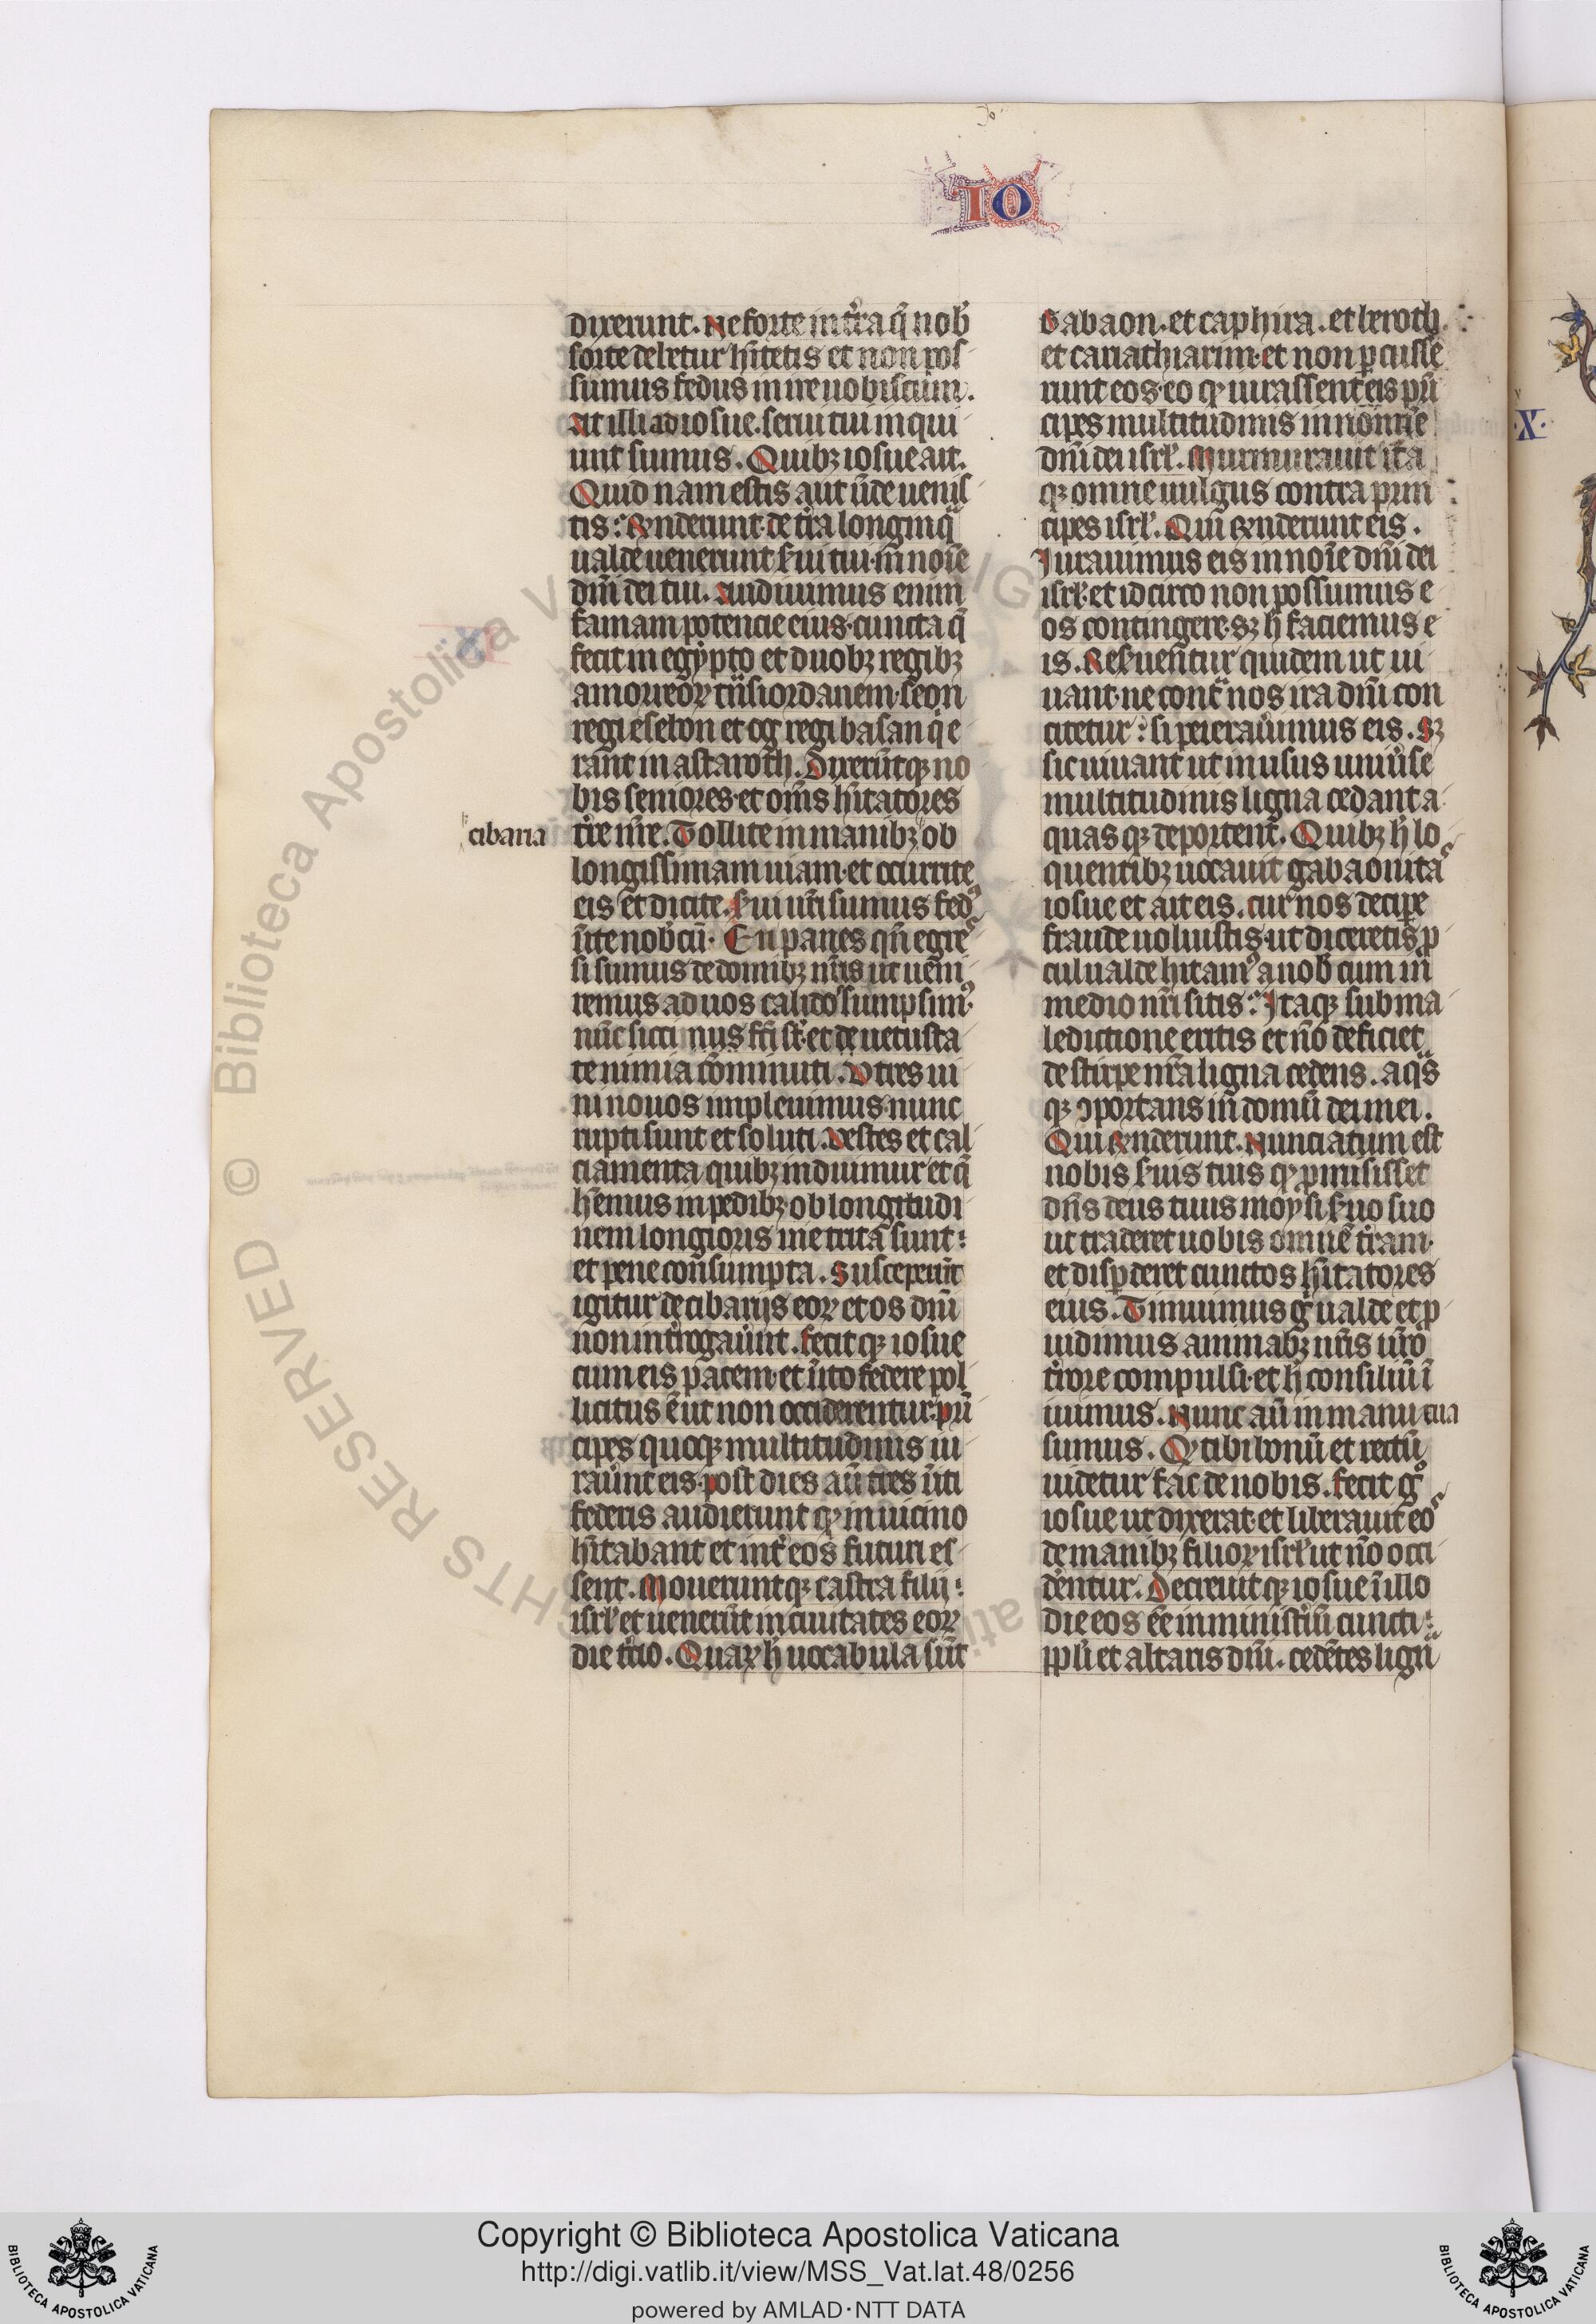 IO
dixerunt. Ne forte in t̾ra q̄ nob̾
sorte debetur h̄itetis et non pos
sumus fedus inire uobiscum.
At illi ad iosue. serui tui inqui
unt sumus. Quibꝫ iosue ait.
Quid nam estis aut ūde uenis
tis? R̄nderunt. de t̾ra longinq̄
ualde uenerunt s̾ui tui. in noīe
dn̄i dei tui. Audiuimus enim
famam potencie eius. cuncta q̄
fecit in egypto et duobꝫ regibꝫ
amorreoꝝ tn̄s iordanem. seon
regi esebon et og regi basan q̇ e
rant in astaroth. Dixerūtqꝫ no
bis seniores. et om̄s h̄itatores
cibaria
t̾re nr̄e. Tollite in manibꝫ ob
longissimam uiam. et occurrite
eis et dicite. s̾ui ur̄i sumus fedꝰ
inite nob̾cū. En panes qn̄ egre
si sumus de domibꝫ nr̄is ut ueni
remus ad uos calidos sumpsimꝰ.
nūc sicci nus fc̄i st̄. et de uetusta
te nimia cōminuti. Vtres ui
ni nouos impleuimus. nunc
rupti sunt et soluti. Vestes et cal
ciamenta quibꝫ induimur et q̄
h̄emus in pedibꝫ. ob longitudi
nem longioris uie trita sunt.
et pene consumpta. Susceperūt
igitur de cibarijs eoꝝ et os dn̄i
non int̾rogauīt. fecitqꝫ iosue
cum eis pacem. et inito federe pol
licitus ē ut non occiderentur. prī
cipes quoqꝫ multitudinis iu
rau̾unt eis. post dies aū tres initi
federis audierunt ꝙ in uicino
h̄itabant et int̾ eos futuri es
sent. Mouerūntqꝫ castra filii
isrl̾. et uenerūt in ciuitates eoꝝ
die t̾cio. Quaꝝ h̄ uocabula sūt
Gabaon. et caphira. et beroth.
et cariathiarim. et non ꝑcusse
runt eos. eo ꝙ iurassent eis prī
cipes multitudinis in nomīe
dn̄i dei isrl̾. Murmurauit ita
qꝫ omne uulgus contra prin
cipes isrl̾. Qui r̄nderunt eis.
Iurauimus eis in noīe dn̄i dei
isrl̾. et idcirco non possumus e
os contingere. sꝫ h̄ faciemus e
is. Res̾uentur quidem ut ui
uant. ne cont̾ nos ira dn̄i con
citetur. si peierau̾imus eis. sꝫ
sic uiuant ut in usus uniu̾se
multitudinis ligna cedant a
quas qꝫ deportent. Quibꝫ h̄ lo
quentibꝫ uocauit gabaonitas
iosue et ait eis. cur nos decipe̾
fraude uoluistis. ut diceretis ꝓ
cul ualde h̄itamꝰ a nob̾ cum in
medio nr̄i sitis? Itaqꝫ sub ma
ledictione eritis et nō deficiet
de stirpe nr̄a ligna cedens. aqͣs
qꝫ ꝯportans in domū dei mei.
Qui r̄nderunt. Nunciatum est
nobis s̾uis tuis ꝙ promisisset
dn̄s deus tuus moysi s̾uo suo
ut traderet uobis omnē t̾ram.
et disꝑderet cunctos h̄itatores
eius. Timuimus gͦ ualde et ꝓ
uidimus animabꝫ nr̄is ur̄o
t̾rore compulsi. et h̄ consiliū ī
iuimus. Nunc aū in manu tua
sumus. Qꝫ tibi bonū et rectū
uidetur fac de nobis. fecit gͦ
iosue ut dixerat. et liberauit eos
de manibꝫ filioꝝ isrl̾ ut nō occi
dentur. Decreuitqꝫ iosue ī illo
die eos ēe in minist̾iū cuncti
ppl̾i et altaris dn̄i. cedētes lignͣ
X.
Copyright © Biblioteca Apostolica Vaticana
http://digi.vatlib.it/view/MSS_Vat.lat.48/0256
powered by AMLAD·NTT DATA
BIBLIOTECA APOSTOLICA VATICANA
BIBLIOTECA APOSTOLICA VATICANA